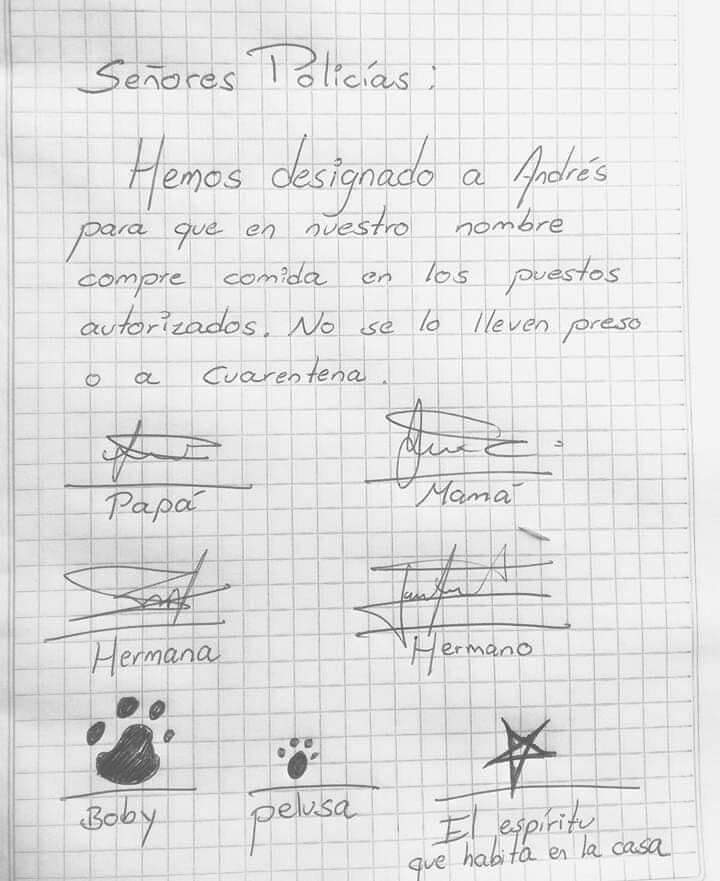 Señores Policías:
Hemos designado a Andrés
para que en nuestro nombre
compre comida en los puestos
autorizados. No se lo lleven preso
o a cuarentena.
Papá
Mamá
Hermana
Hermano
Boby
pelusa
El espíritu
que habita en la casa